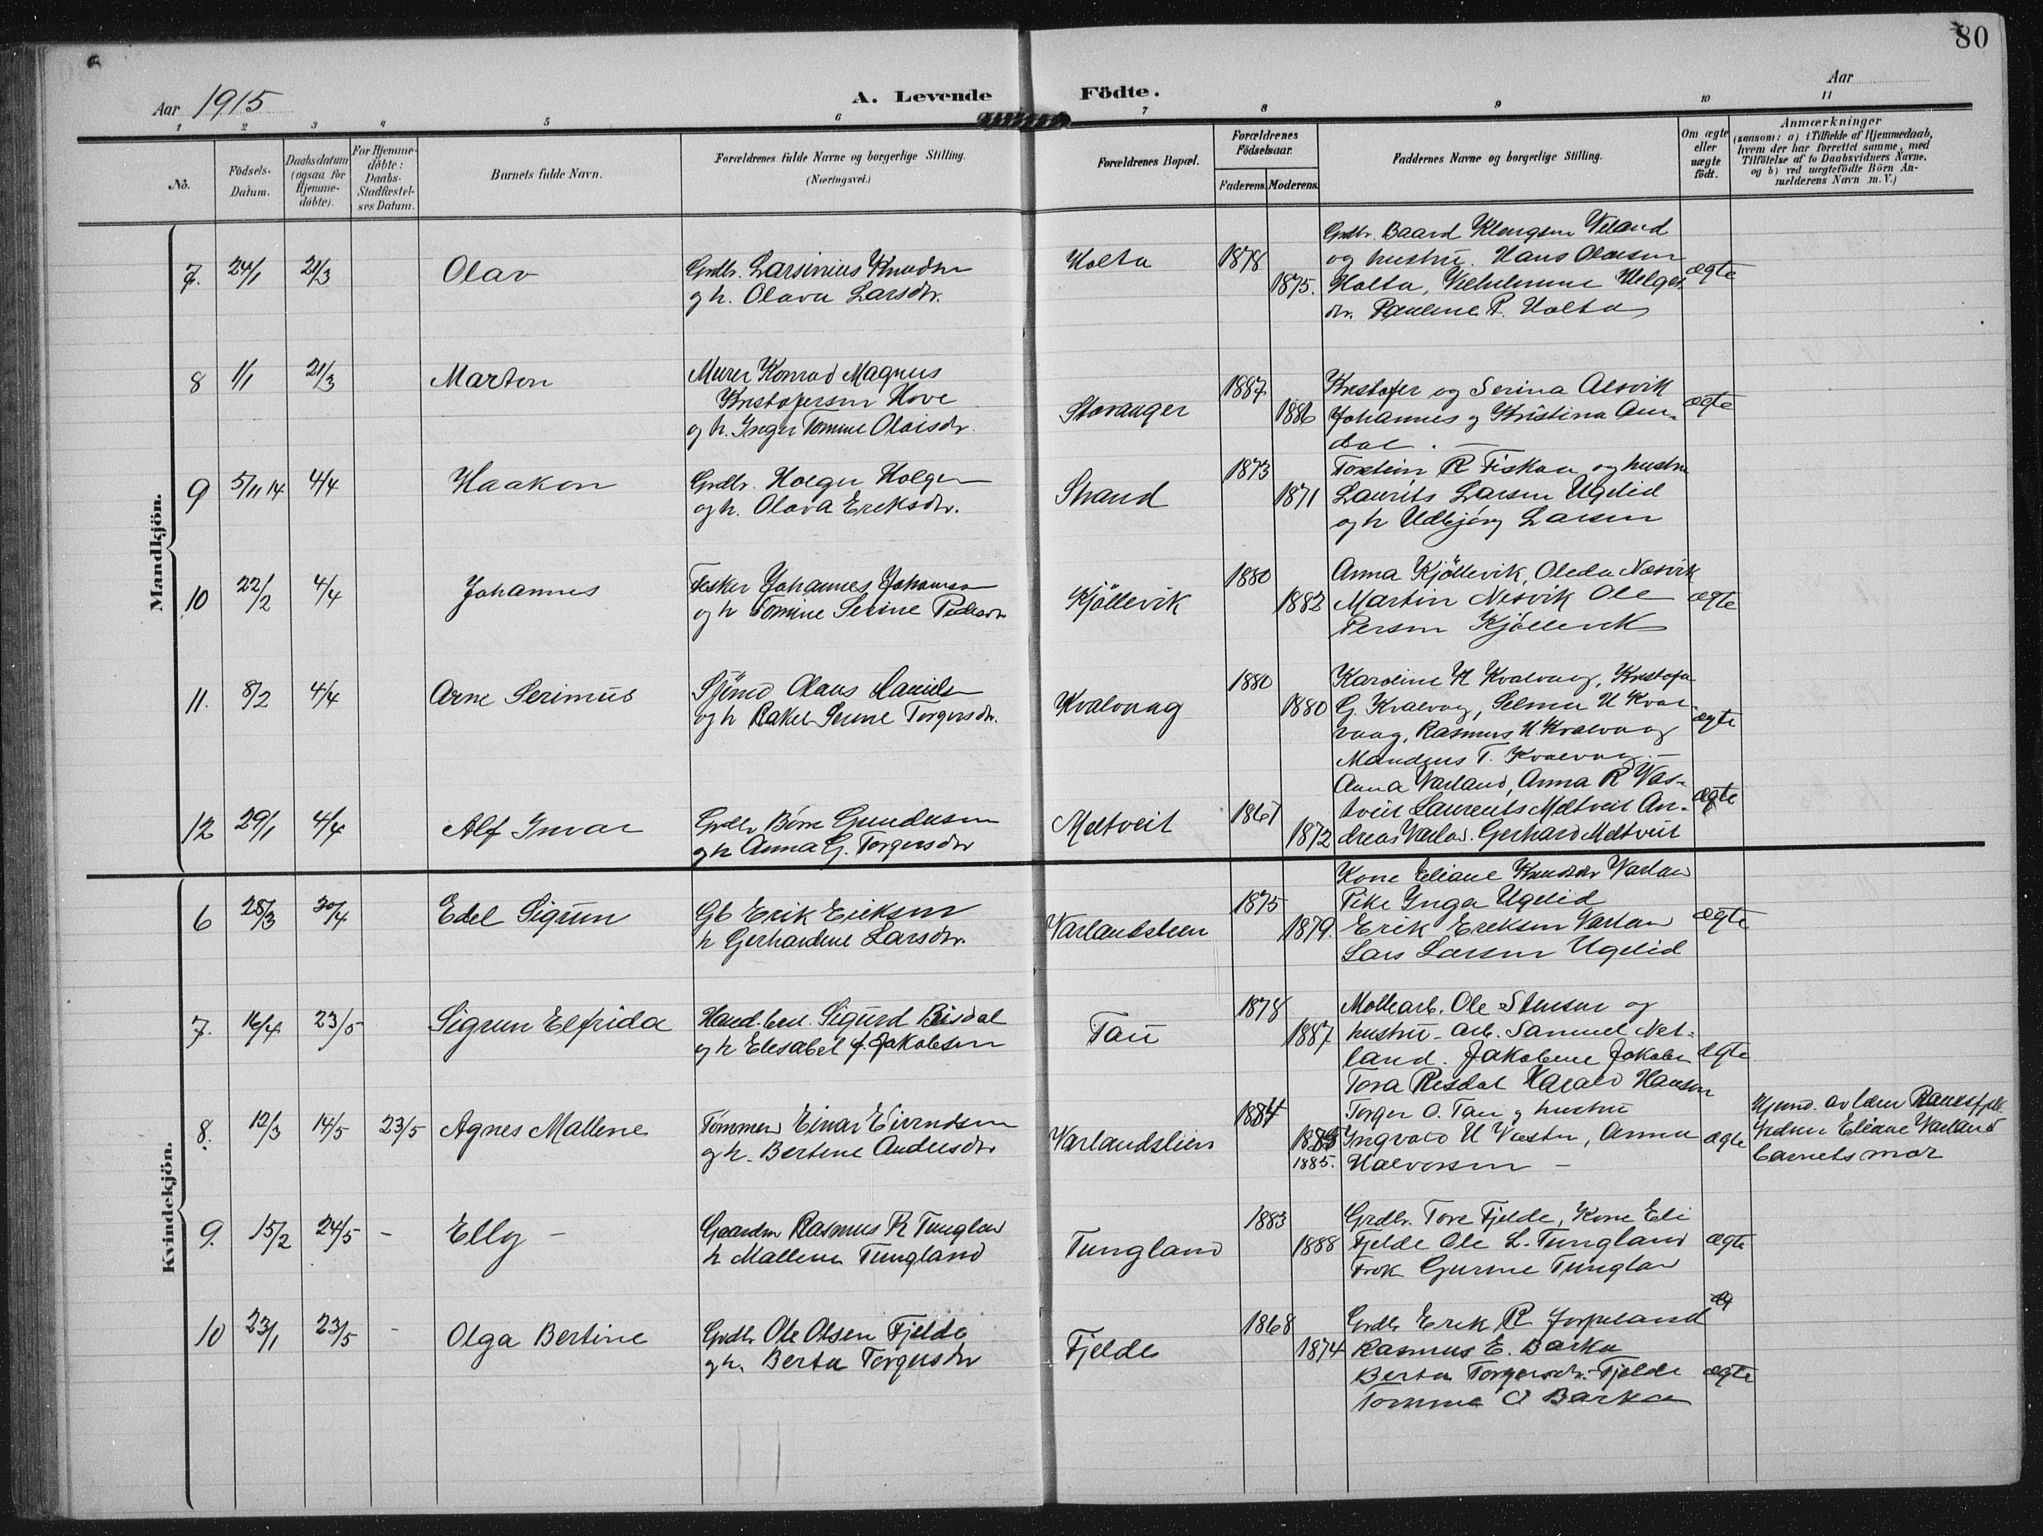 80
Aar 1915
A. Levende Födte.
Aar
1 2 3 4 5 6 7 8 9 10 11
No.
Födsels-
Datum.
Daabsdatum
(ogsaa for
Hjemme-
døbte).
For Hjemme-
døbte:
Daabs-
Stadfæstel-
ses Datum.
Barnets fulde Navn.
Forældrenes fulde Navne og borgerlige Stilling.
(Næringsvei.)
Forældrenes Bopæl.
Forældrenes
Födselsaar.
Faderens. Moderens.
Faddernes Navne og borgerlige Stilling.
Om ægte
eller
uægte
født.
Anmærkninger
(saasom: a) i Tilfælde af Hjemmedaab,
hvem der har forrettet samme, med
Tilföielse af to Daabsvidners Navne,
og b) ved uægtefödte Börn An-
melderens Navn m. V.)
Mandkjön.
7. 24/1 21/3 Olav
Grdbr. Larsinius Knudsen
og h. Olava Larsdtr.
Holta 1878 1875.
Grdbr. Baard Klengsen Veland
og hustru. Hans Olausen
Holta, Vilhelmine Helges
dtr. Pauline R. Holta
ægte
8 1/1 21/3 Marton
Murer Konrad Magnus
Kristofersen Hove
og h. Inger Tomine Olaisdtr.
Stavanger 1887 1886
Kristofer og Serina Alsvik
Johannes og Kristina Am-
dal. —
ægte
9 5/11 14 4/4 Haakon
Grdbr. Holger Holgersen
og h. Olava Eriksdtr.
Strand 1873 1871
Torstein R Fiskaa og hustru
Laurits Larsen Ugelid
og h Udbjörg Larsen
10 22/2 4/4 Johannes
Fisker Johannes Johansen
og h Tomine Serine Pedersdtr
Kjöllevik 1880 1882
Anna Kjöllevik, Oleda Nesvik
Martin Nesvik Ole
Persen Kjöllevik
ægte
11. 8/2 4/4 Arne Serinius
Sjömd Olaus Danielsen
og h Rakel Serine Torgersdtr.
Kvalvaag 1880 1880
Karoline K Kvalvaag, Kristofer
G. Kvalvag, Selma U Kval-
vaag, Rasmus K Kvalvaag
Mandius T. Kvalvaag. —
ægte
12 29/1 4/4 Alf Invar
Grdbr Börre Gundersen
og h Anna G. Torgersdtr
Meltveit 1867 1872
Anna Varland, Anna R Vas-
tveit Laurents Meltveit An-
dreas Varland. Gerhard Meltveit
ægte
Kvindekjön.
6 28/3 30/4 Edel Sigrun
Gb Erik Eriksen
h Gerhardine Larsdtr.
Varlandslien 1875 1879.
Kone Eliane Knudsdtr Varland
Pike Inga Ugelid
Erik Eriksen Varland
Lars Larsen Ugelid
ægte
7. 16/4 23/5 Sigrun Elfrida
Hand.bet. Sigurd Risdal
og h Elisabet f. Jakobsen
Tau 1878 1887
Möllearb. Ole Stensen og
hustru - arb. Samuel Net-
land. Jakobine Jakobs
Tora Risdal Harald Hansen
ægte
8. 12/3 14/5 23/5 Agnes Mallene
Tömmerm Einar Eivindsen
og h. Bertine Andersdtr
Varlandslien 1884 1885.
Torger O. Tau og hustru
Ingvald U Vastv, Anna
Halvorsen —
ægte
Hjemd. av
Vidner Eliane Varland
barnets mor
9. 15/2 24/5 - Elly —
Gaardm Rasmus R Tungland
h Mallene Tungland
Tungland 1883 1888
Grdbr. Tore Fjelde, Kone Eli
Fjelde Ole L. Tungland
Frok Gurine Tungland
ægte
10 23/1 23/5 - Olga Bertine
Grdbr Ole Olsen Fjelde
og h. Berta Torgersdtr
Fjelde 1868 1874
Grdbr Erik R Jörpeland
Rasmus E. Barka
Berta Torgersdtr. Fjelde
Tomine O Barkaa
ægte